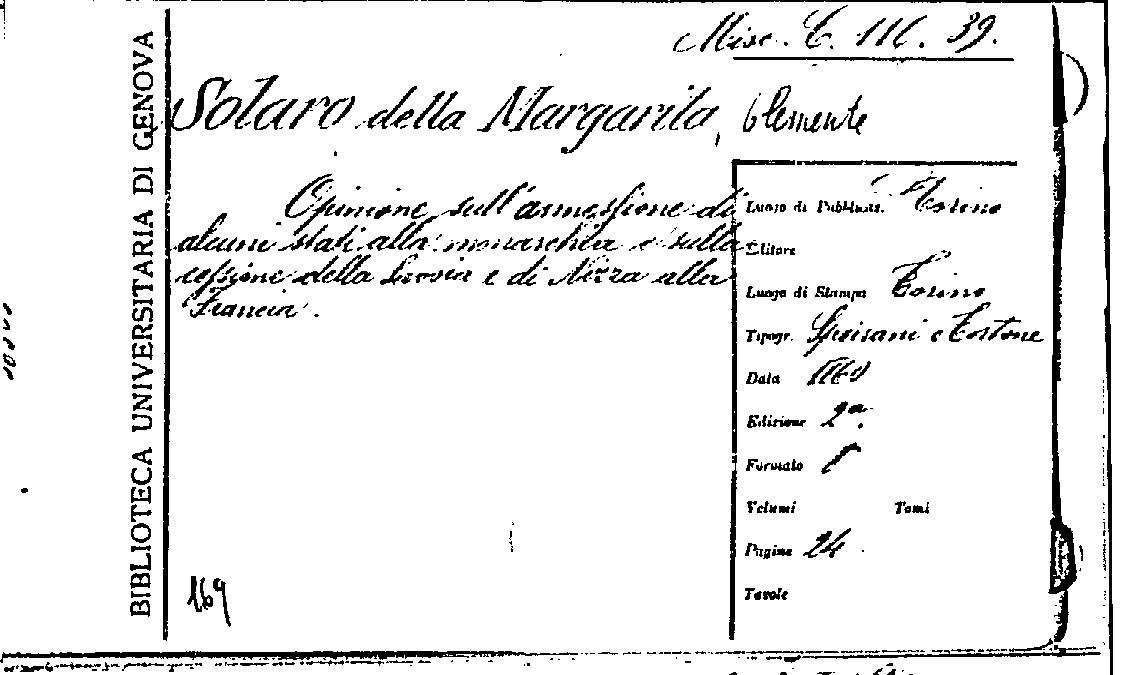 BIBLIOTECA UNIVERSITARIA DI GENOVA
Misc. C. 116. 39.
Solaro della Margarita, Clemente
Opinione sull'annessione di
alcuni stati alla monarchia e sulla
cessione della Savoia e di Nizza alla
Francia.
Luogo di Pubblicaz. Torino
Editore
Luogo di Stampa Torino
Tipogr. Speirani e Tortone
Data 1860
Edizione 2ª.
Formato 8
Volumi Tomi
Pagine 24
Tavole
169